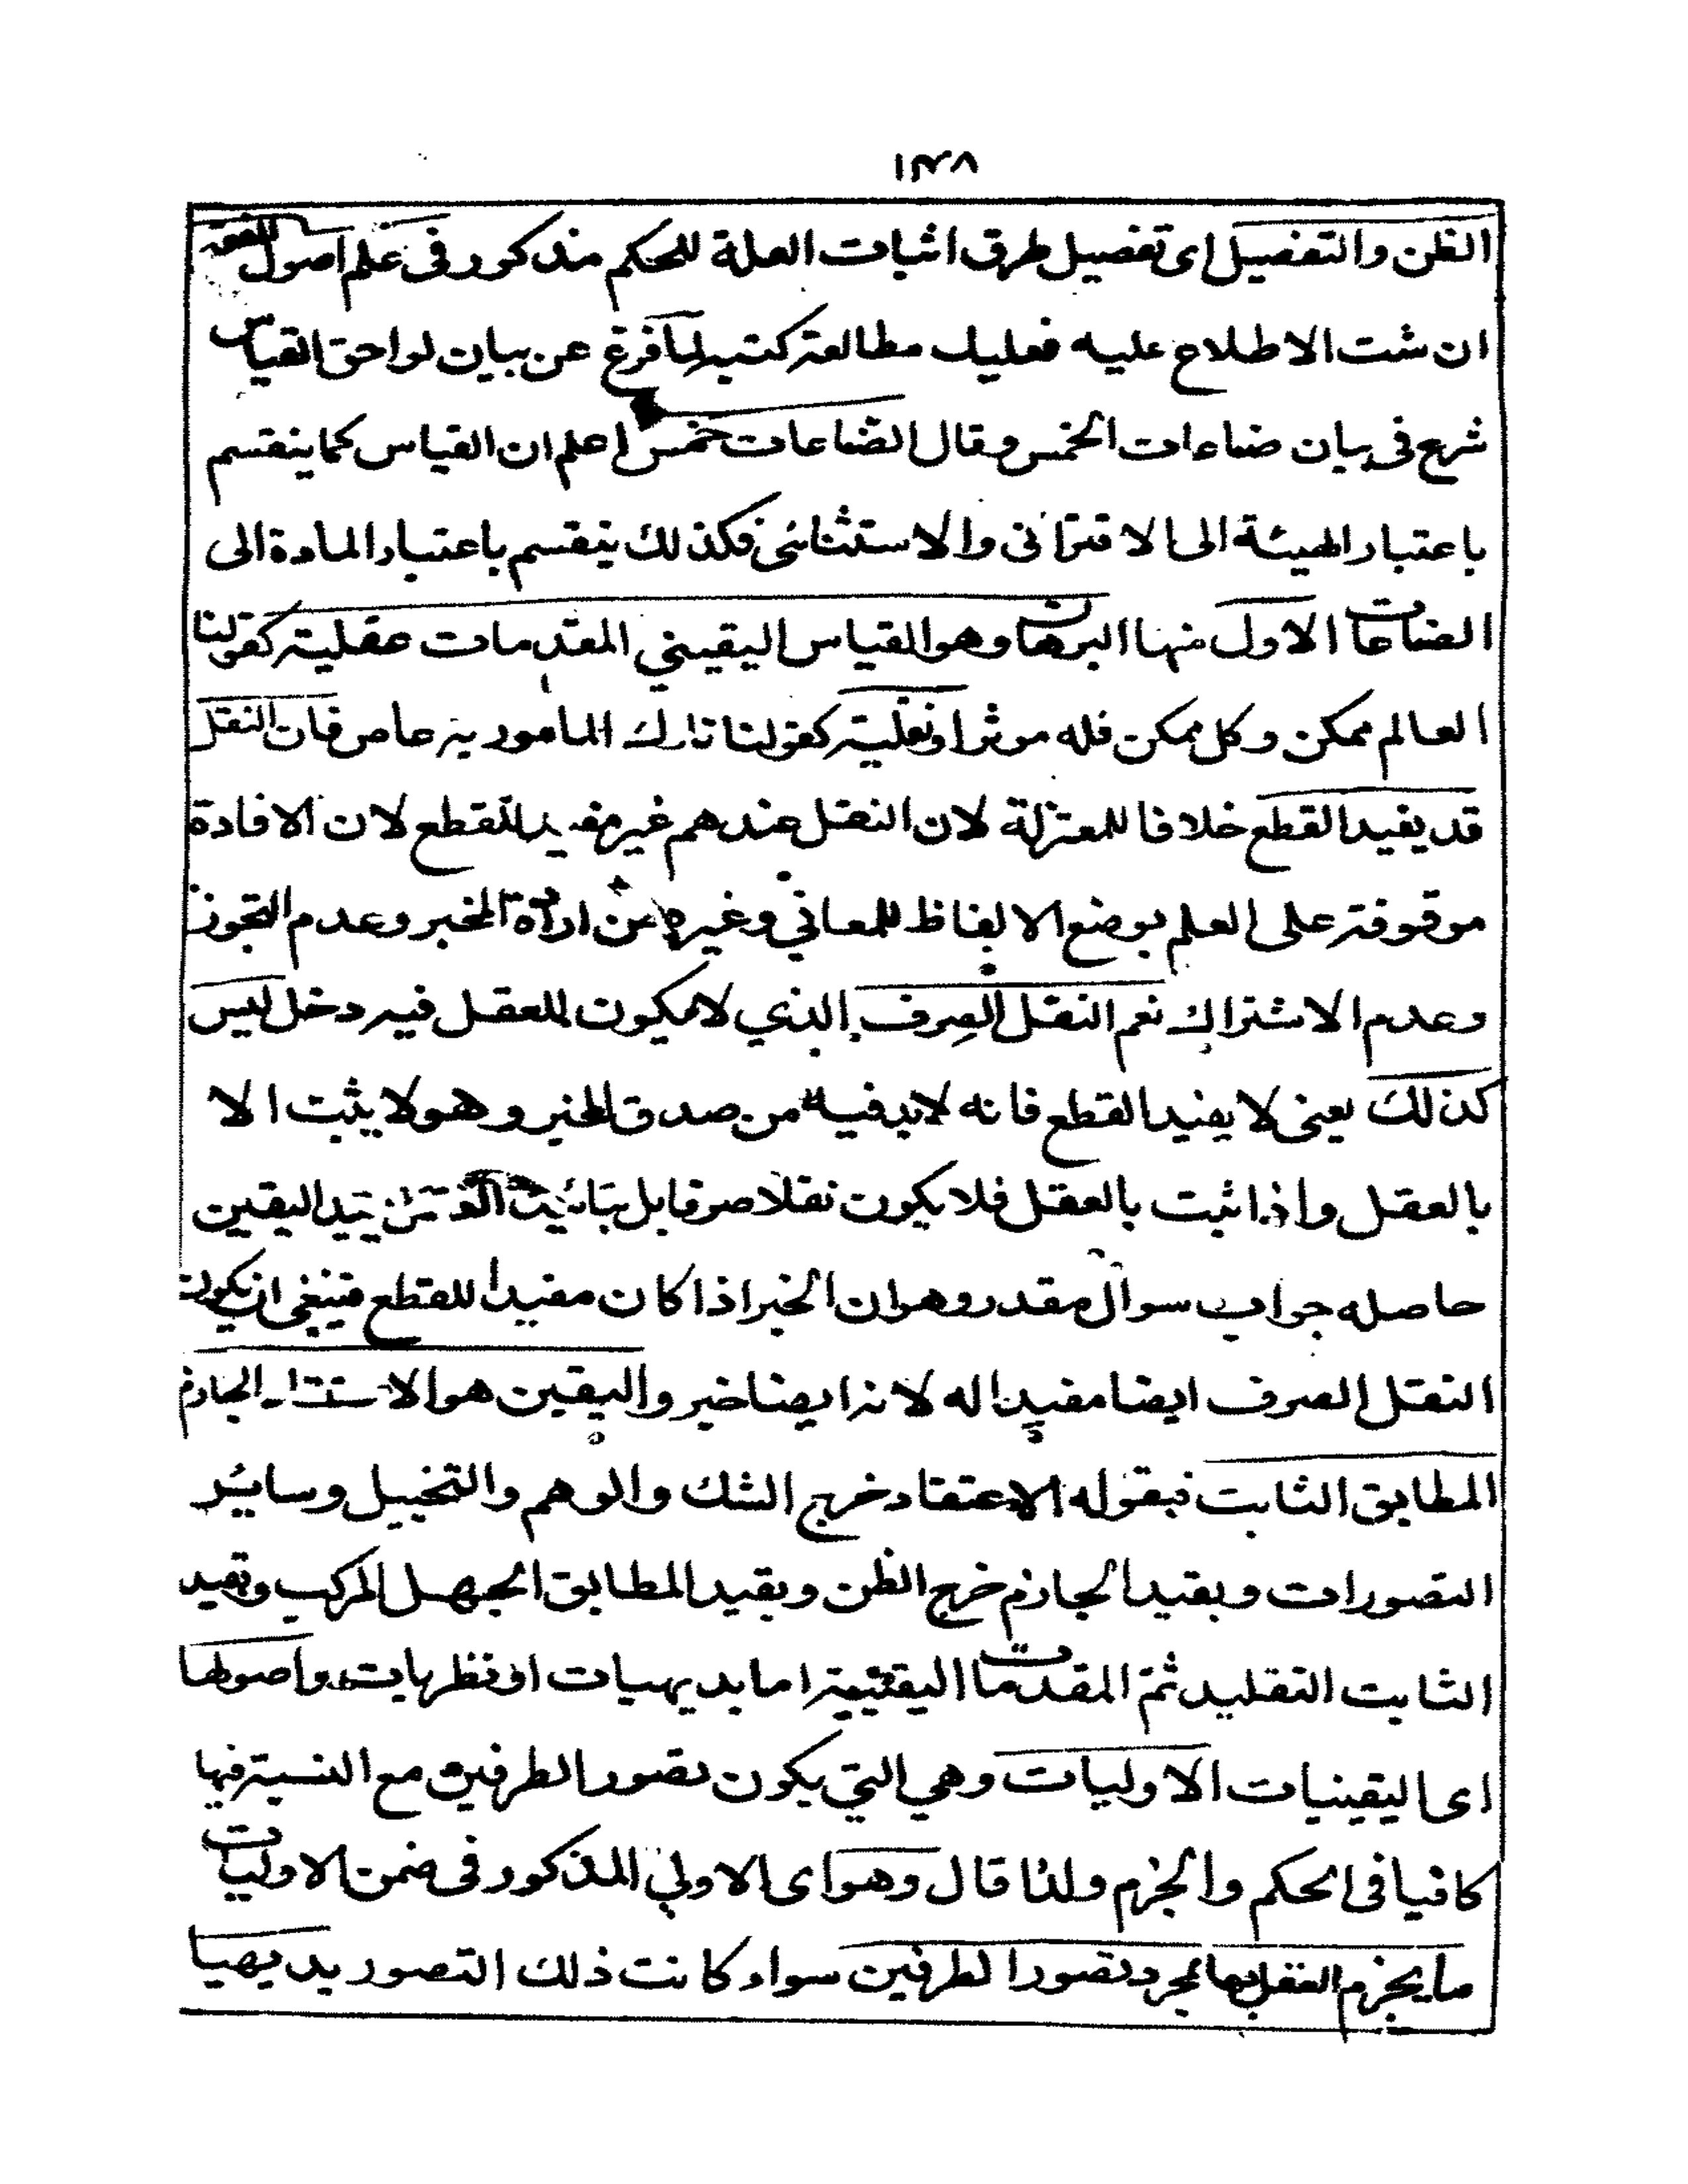 ١٣٨
الظن والتفصيل اى تفصيل طرق اثبات العلة للحكم مذكور فى علم اصول الفقه
ان شت الاطلاع عليه فعليك مطالعة كتبه لما فرغ عن بيان لواحق القياس
شرع فى بيان ضاعات الخمس وقال الضاعات خمس اعلم ان القياس كما ينقسم
باعتبار الهيئة الى الاقترانى والاستثنائى فكذلك ينقسم باعتبار المادة الى
الصناعات الاول منها البرهان وهو القياس اليقيني المقدمات عقلية كقولنا
العالم ممكن وكل ممكن فله موثر او نقلية كقولنا تارك المامور به عاص فان النقل
قد يفيد القطع خلافا للمعتزلة لان النقل عندهم غير مفيد للقطع لان الافادة
موقوفة على العلم بوضع الالفاظ للمعاني وغيره من ارادة المخبر وعدم التجوز
وعدم الاشتراك نعم النقل الصرف الذي لا يكون للعقل فيه دخل ليس
كذلك يعنى لا يفيد القطع فانه لابد فيه من صدق الخبر وهو لا يثبت الا
بالعقل واذا ثبت بالعقل فلا يكون نقلا صرفا بل اليقين
حاصله جواب سوال مقدر وهو ان الخبر اذا كان مفيدا للقطع فينبغى ان يكون
النقل الصرف ايضا مفيدا له لانه ايضا خبر واليقين هو الجازم
المطابق الثابت فبقوله الاعتقاد خرج الشك والوهم والتخييل وسائر
التصورات وبقيد الجازم خرج الظن وبقيد المطابق الجهل المركب وبقيد
الثابت التقليد ثم المقدمات اليقينية اما بديهيات او نظريات واصولها
اى اليقينيات الاوليات وهي التي يكون تصور الطرفين مع النسبة فيها
كافيا فى الحكم والجزم ولذا قال وهو اى الاولي المذكور فى ضمن الاوليات
ما يجزم العقل بها بمجرد تصور الطرفين سواء كانت ذلك التصور بديهيا